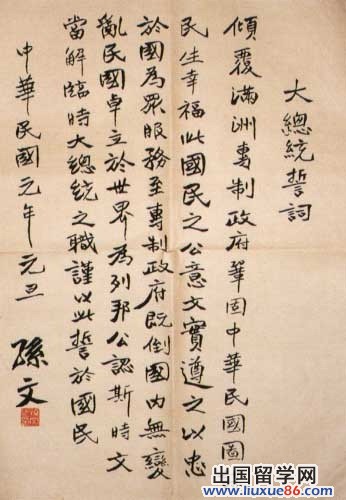 大總統誓詞
傾覆滿洲專制政府鞏固中華民國圖謀
民生幸福此國民之公意文實遵之以忠
於國為眾服務至專制政府既倒國內無變
亂民國卓立於世界為列邦公認斯時文
當解臨時大總統之職謹以此誓於國民
中華民國元年元旦
孫文
出国留学网
www.liuxue86.com